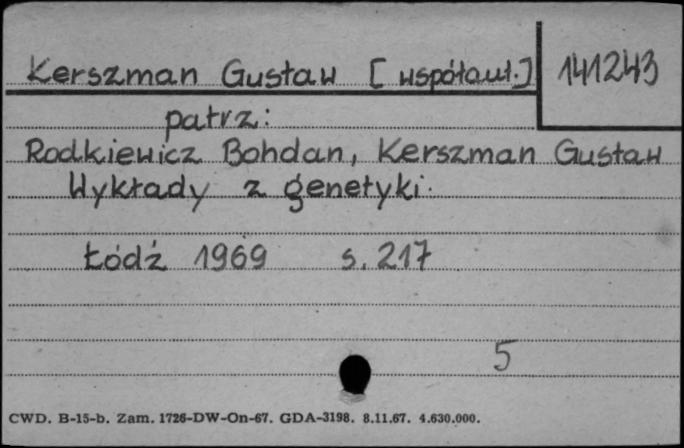 Kerszman Gustaw [współaut.] 141243
patrz:
Rodkiewicz Bohdan, Kerszman Gustaw
Wykłady z genetyki.
Łódź 1969 s. 217
5
CWD. B-15-b. Zam. 1726-DW-On-67. GDA-3198. 8.11.67. 4.630.000.